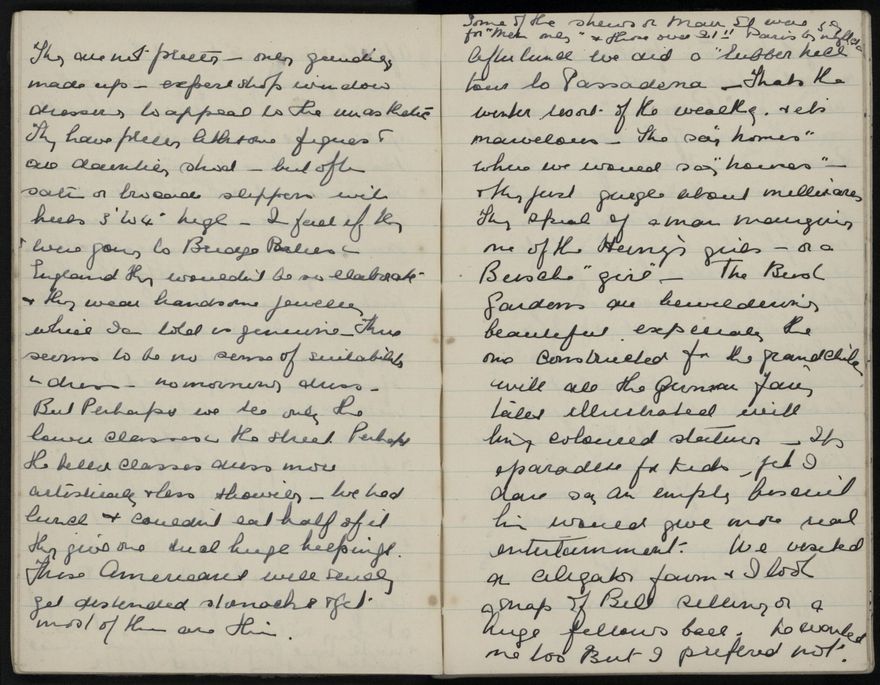 They are not pretty – only gaudily
made up – expert shop window
dressers to appeal to the unaesthetic
They have pretty little figures &
are daintily shod – but often
satin or brocade slippers with
heels 3" to 4" high – I feel if they
were going to Bridge Parties in
England they wouldn't be so elaborate
& they wear handsome jewellery
which I am told is genuine. There
seems to be no sense of suitability
in dress – no morning dress –
But Perhaps we see only the
lower classes in the street Perhaps
the better classes dress more
artistically & less showily – We had
lunch & couldn't eat half of it
they give one such huge helpings.
These Americans will surely
get distended stomachs & yet
most of them are thin.
Some of the shows on Main St were
for "Men only" & those over 21!! Paris by night
After lunch we did a "rubber neck"
tour to Passadena – Thats the
winter resort of the wealthy. & it's
marvelous – She say "homes"
where we would say "houses" –
& they just gurgle about millionaires
They speak of a man marrying
one of the Heinz's girls – or a
"girl" – The Busch
Gardens are bewilderingly
beautiful especially the
one constructed for the grandchildren
with all the German fairy
tales illustrated with
tiny coloured statues – Its
a paradise for kids, yet I
dare say an empty biscuit
tin would give more real
entertainment. We visited
an aligator farm & I took
a snap of Bill sitting on a
huge fellows back. He wanted
me too But I prefered not.